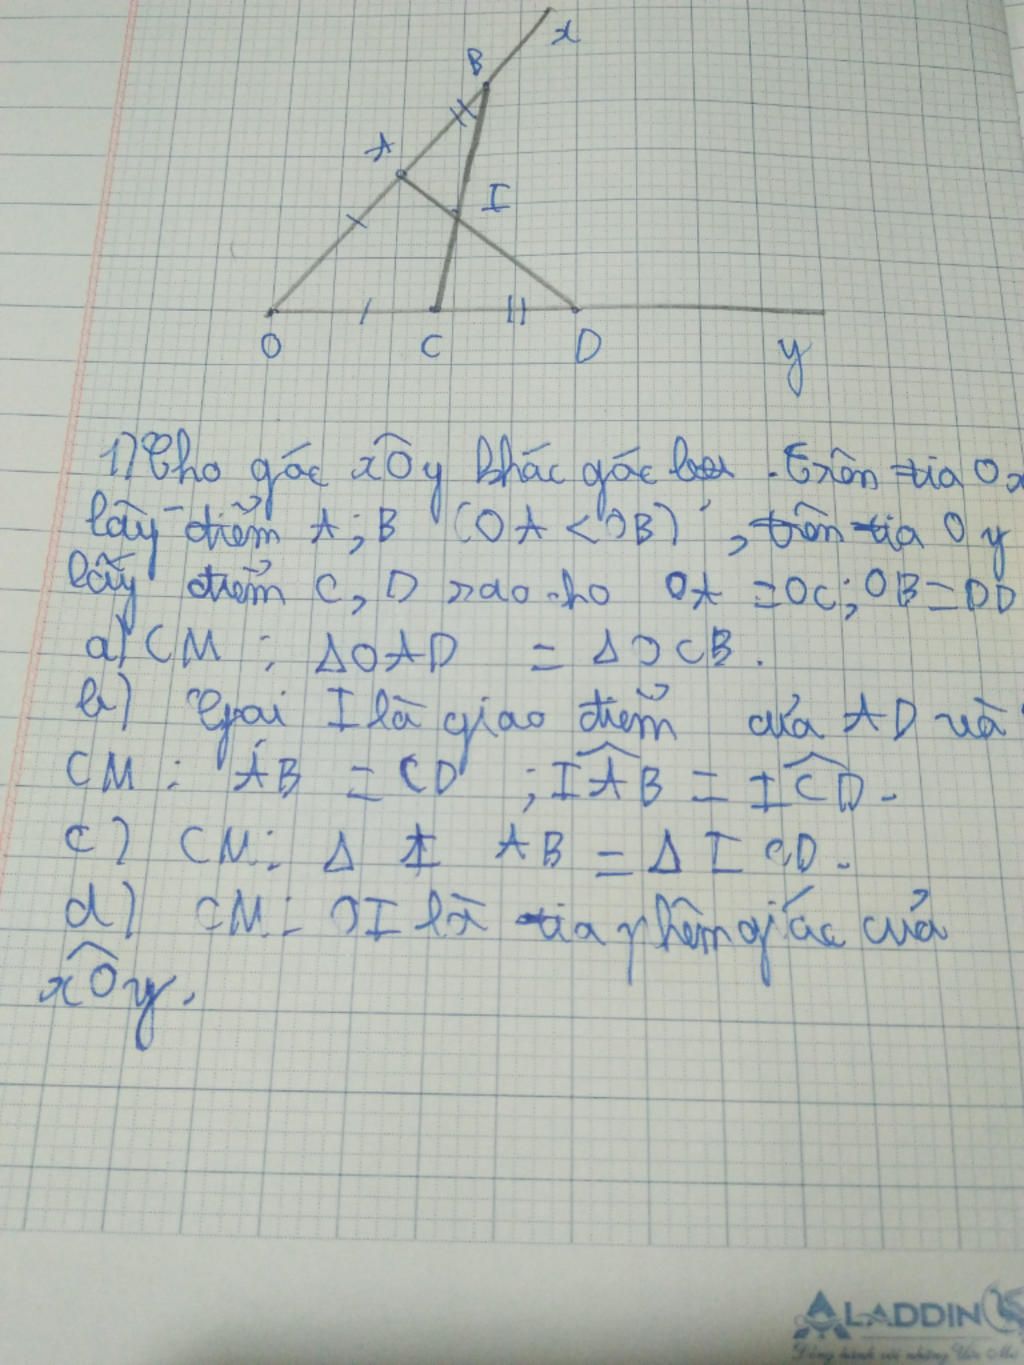 x
B
A
I
O
C
D
y
1) Cho góc xOy khác góc bẹt. Trên tia Ox
lấy điểm A; B (OA < OB), trên tia Oy
lấy điểm C, D sao cho OA = OC; OB = OD
a) CM: ΔOAD = ΔOCB.
b) Gọi I là giao điểm của AD và
CM: AB = CD; IAB = ICD.
c) CM: Δ I AB = Δ I CD.
d) CM: OI là tia phân giác của
xOy.
ALADDIN